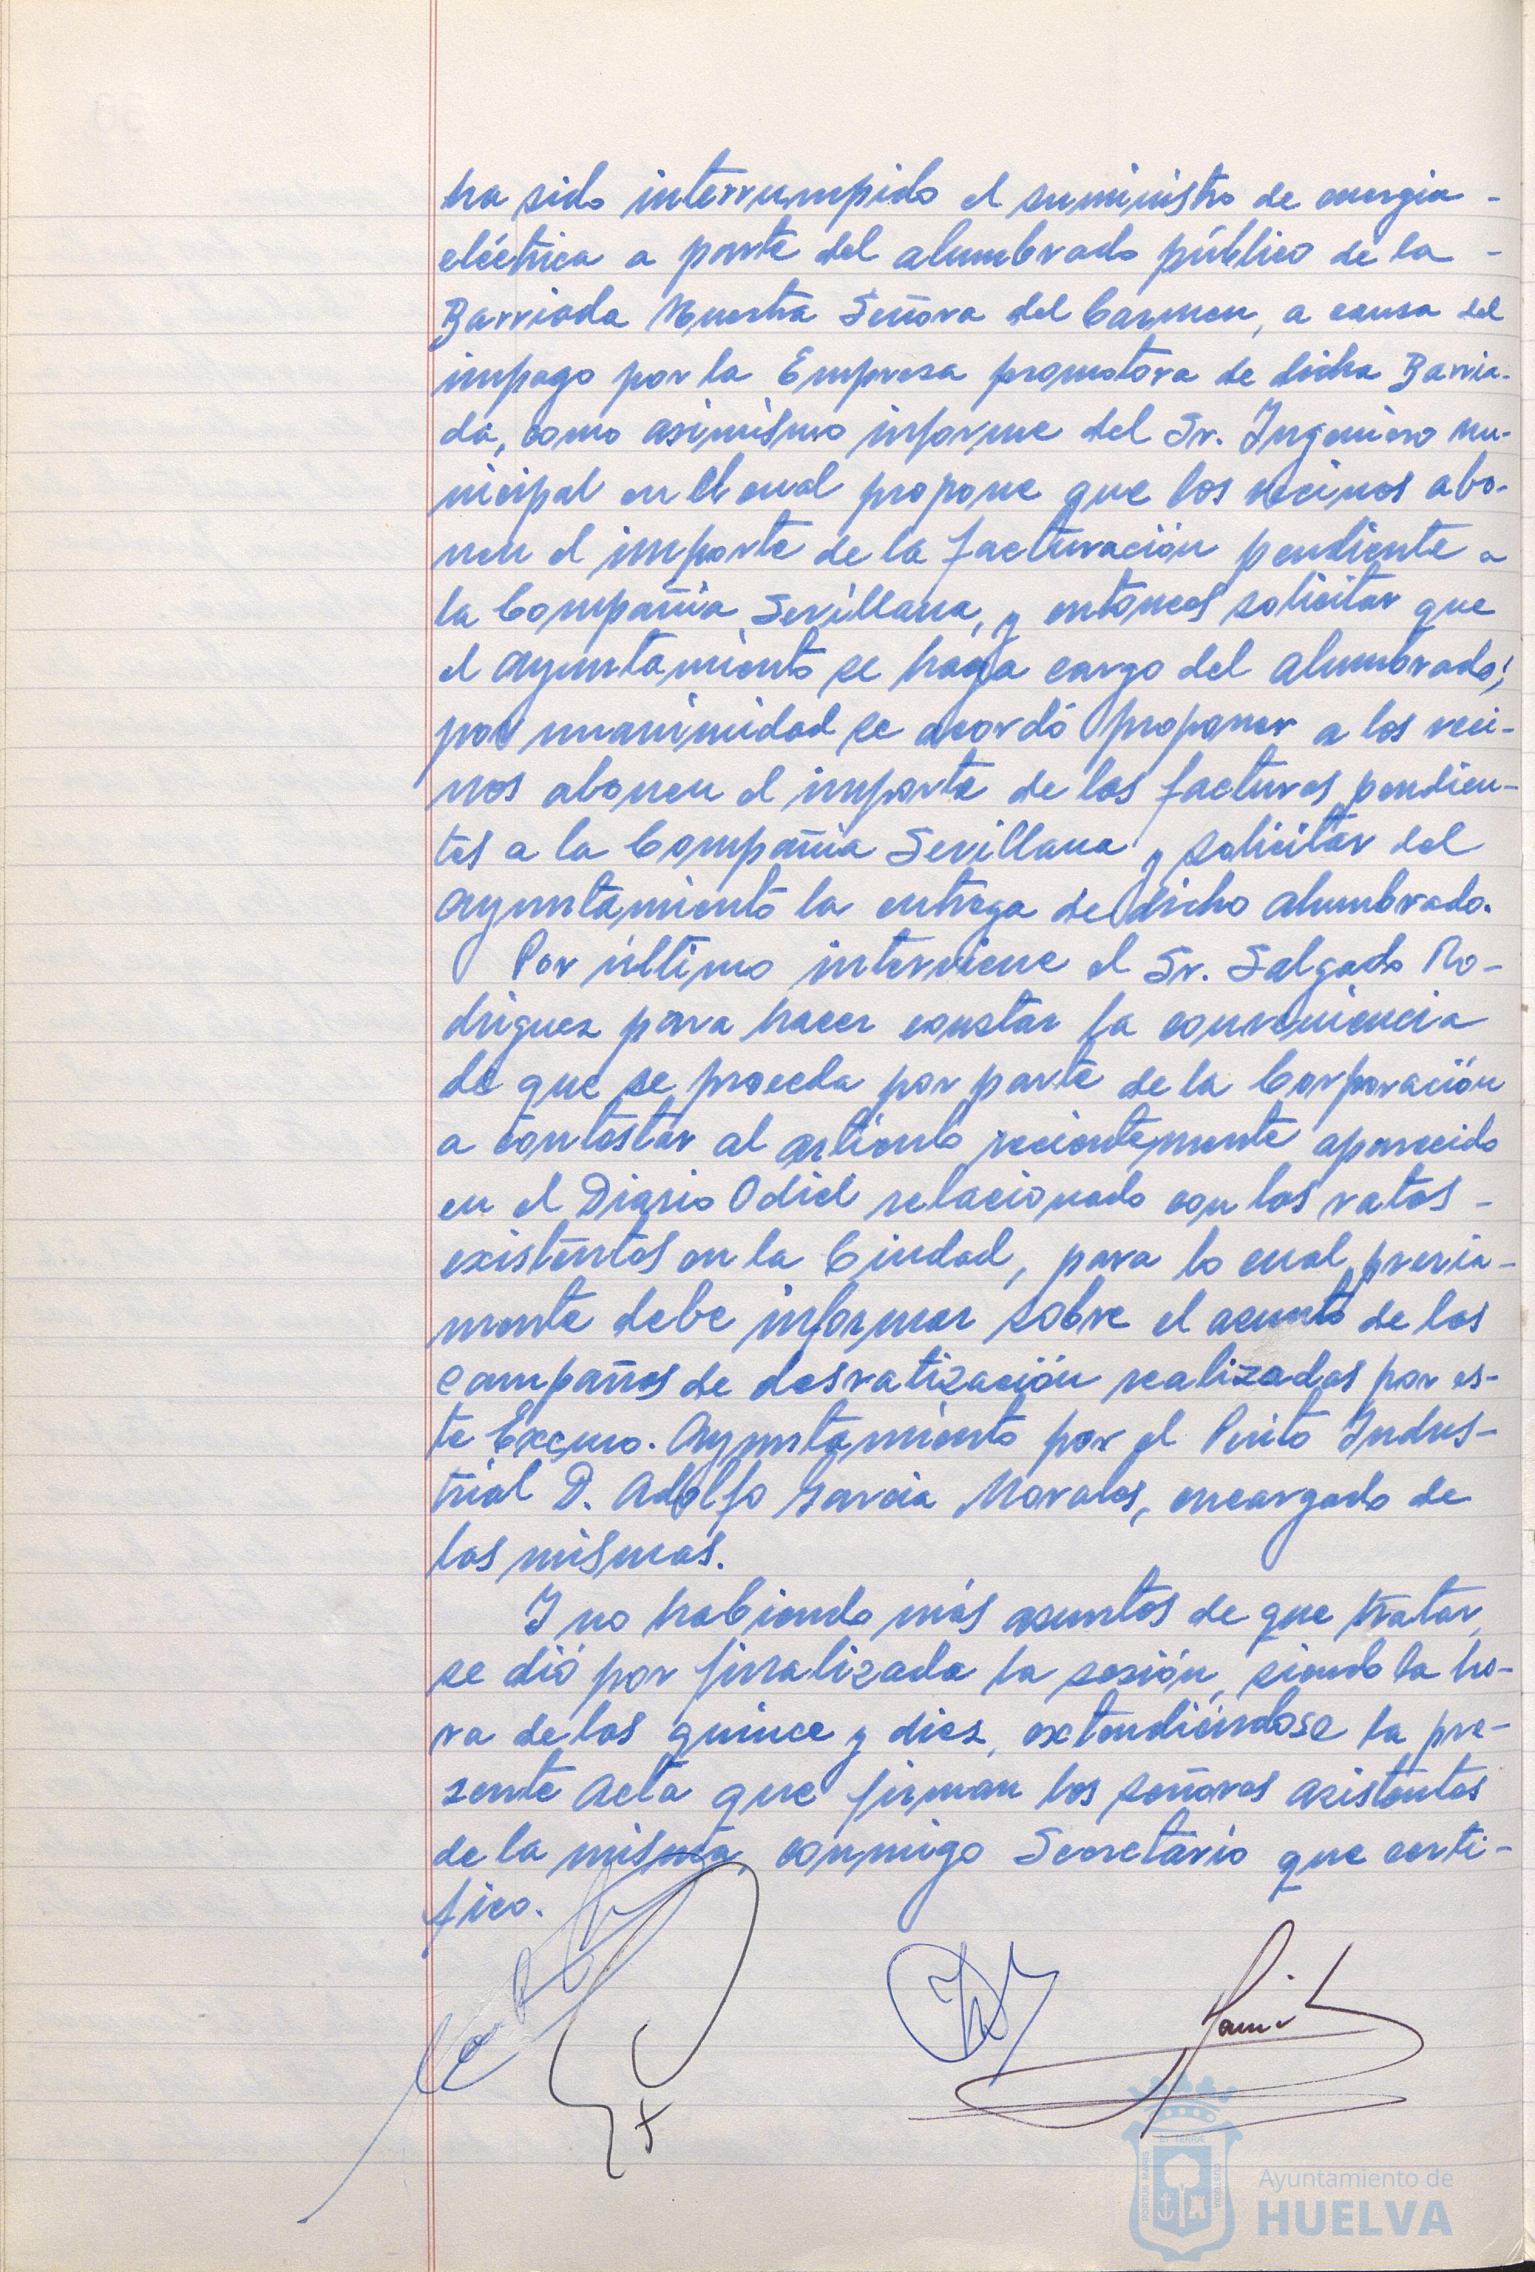 ha sido interrumpido el suministro de energia -
eléctrica a parte del alumbrado público de la -
Barriada Nuestra Señora del Carmen, a causa del
impago por la Empresa promotora de dicha Barria-
da, como asimismo informe del Sr. Ingeniero mu-
nicipal en el cual propone que los vecinos abo-
nen el importe de la facturación pendiente a
la Compañia Sevillana, y entonces solicitar que
el Ayuntamiento se haga cargo del alumbrado;
por unanimidad se acordó proponer a los veci-
nos abonen el importe de las facturas pendien-
tes a la Compañia Sevillana y solicitar del
Ayuntamiento la entrega de dicho alumbrado.
Por último interviene el Sr. Salgado Ro-
driguez para hacer constar la conveniencia
de que se proceda por parte de la Corporación
a contestar al articulo recientemente aparecido
en el Diario Odiel relacionado con las ratas -
existentes en la Ciudad, para lo cual previa-
mente debe informar sobre el asunto de las
campañas de desratización realizadas por es-
te Excmo. Ayuntamiento por el Perito Indus-
trial D. Adolfo Garcia Morales, encargado de
las mismas.
Y no habiendo más asuntos de que tratar,
se dió por finalizada la sesión, siendo la ho-
ra de las quince y diez, extendiéndose la pre-
sente Acta que firman los señores asistentes
de la misma, conmigo Secretario que certi-
fico.
PORTUS MARIS
ET TERRAE
CUSTODIA
Ayuntamiento de
HUELVA